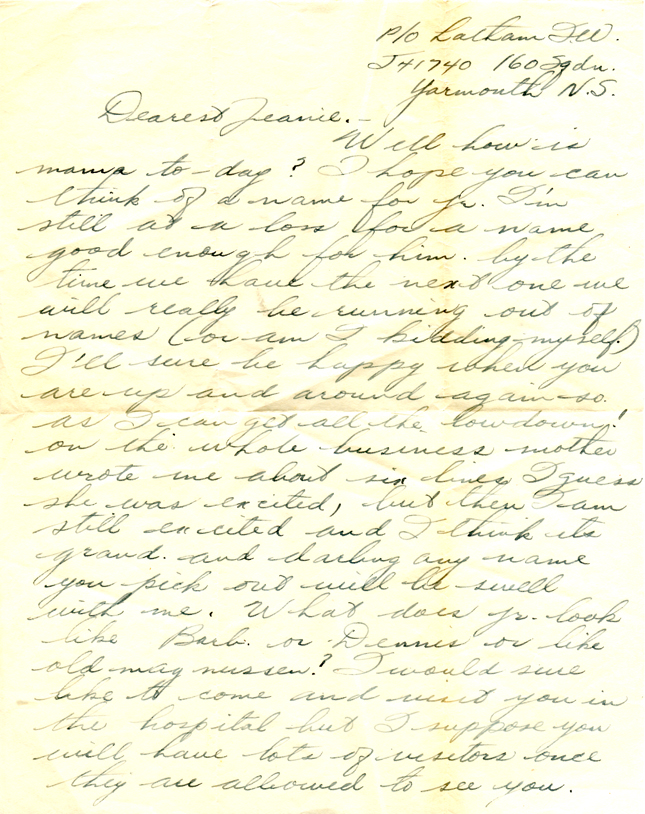 P/O Latham I.W.
J41740 160 Sqdn.
Yarmouth N.S.
Dearest Jeanie. –
Well how is
mama to-day? I hope you can
think of a name for jr. I'm
still at a loss for a name
good enough for him. by the
time we have the next one we
will really be running out of
names (or am I kidding myself.)
I'll sure be happy when you
are up and around again so
as I can get all the lowdown!
on the whole business mother
wrote me about six lines I guess
she was excited, but then I am
still excited and I think its
grand. and darling any name
you pick out will be swell
with me. What does jr. look
like Barb. or Dennis or like
old mag nussen? I would sure
like to come and visit you in
the hospital but I suppose you
will have lots of visitors once
they are allowed to see you.